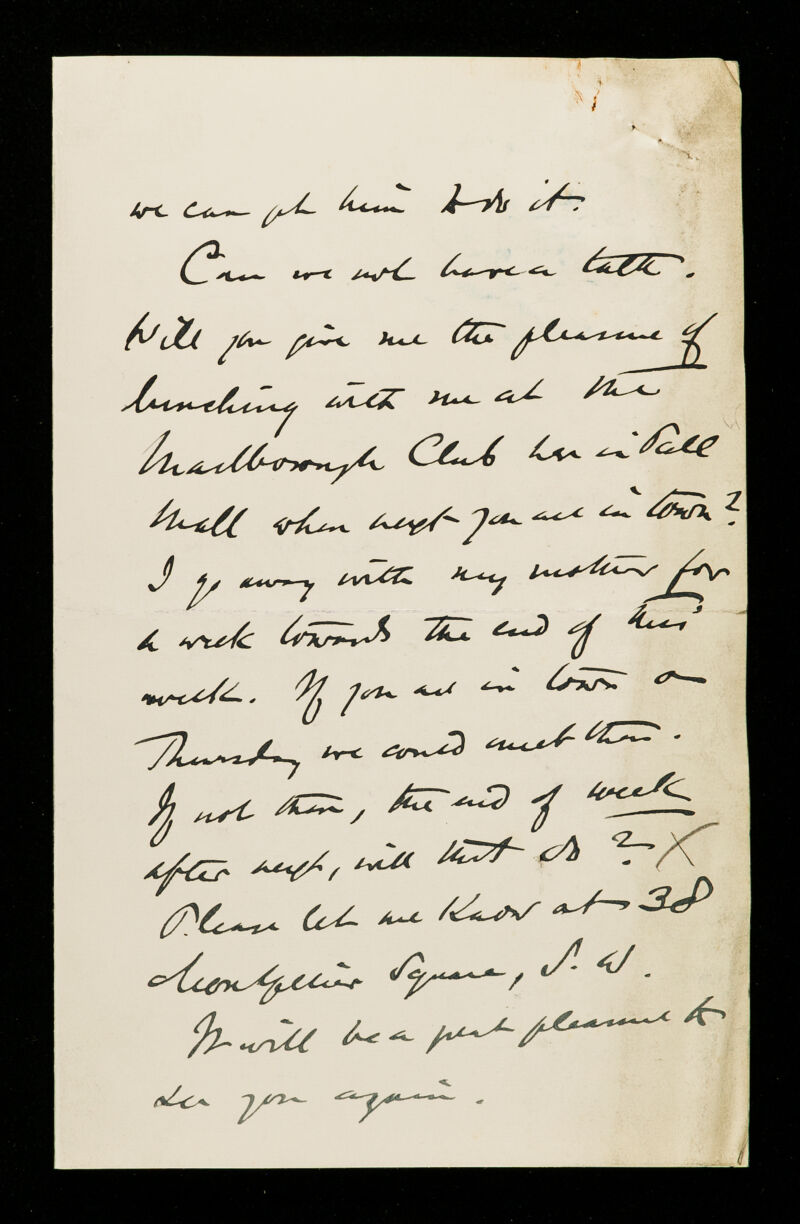 we can get him to do it.
Can we not have a talk.
Will you give me the pleasure of
lunching with me at the
Marlborough Club here in Pall
Mall when next you are in town?
I go away with my mother for
a week towards the end of this
week. If you are in town on
Thursday we could meet then.
If not then, the end of week
after next, will that do? X
Please let me know at 38
Montpelier Square, S. W.
It will be a great pleasure to
see you again.